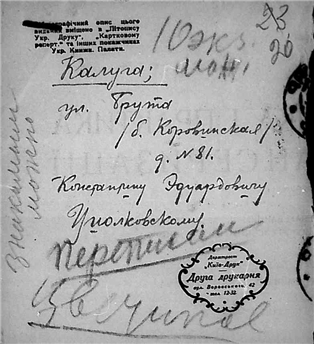 графічний опис цього
видання вміщено в „Літопису
Укр. Друку“, „Картковому
реперт.“ та інших покажчиках
Укр. Книжн. Палати.
10 экз.
23
20
Калуга;
ул. Брута
/б. Коровинская/
д. N 81.
Константину Эдуардовичу
Циолковскому
знакомым
можно
переписан
Держтрест
„Київ-Друк“
Друга друкарня
вул. Воровського 42
тел. 13-32